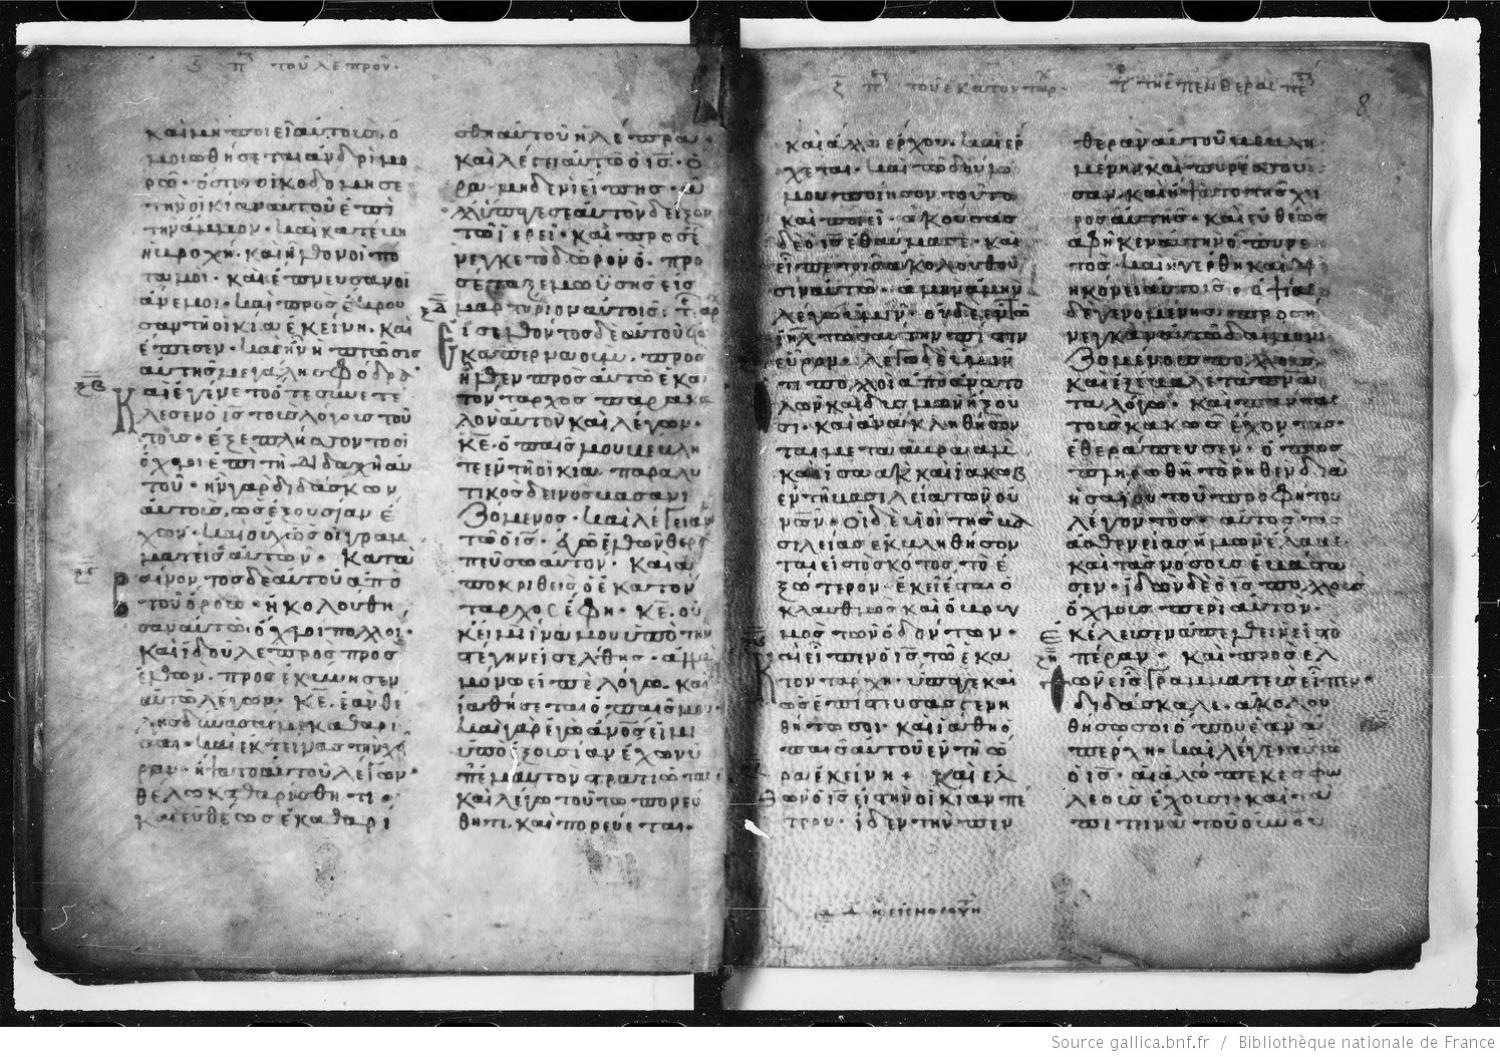 ϛ πε τοῦ λεπροῦ·
καὶ μὴ ποιεῖ αὐτοὺς, ὁ
μοιωθήσεται ἀνδρὶ μω
ρῶ· ὅστις οἰκοδόμησε
τὴν οἰκίαν αὐτοῦ ἐπὶ
τὴν ἄμμον· καὶ κατέβη
ἡ βροχὴ· καὶ ἦλθον οἱ πο
ταμοὶ· καὶ ἔπνευσαν οἱ
ἄνεμοι· καὶ προσέκρου
σαν τῆ οἰκία ἐκείνη· καὶ
ἔπεσεν· καὶ ἦν ἡ πτῶσις
αὐτῆς μεγάλη σφόδρα·
ξβ
Καὶ ἐγένετο ὅτε συνετέ
λεσεν ὁ ις τοὺς λόγους τού
τους· ἐξεπλήσσοντο οἱ
ὄχλοι ἐπὶ τῆ διδαχῆ αὐ
τοῦ· ἦν γὰρ διδάσκων
αὐτοὺς, ὡς ἐξουσίαν ἔ
χων· καὶ οὐχ ὡς οἱ γραμ
ματεῖς αὐτῶν· Καταβ
αίνοντος δὲ αὐτοῦ ἀπὸ
τοῦ ὄρους· ἠκολούθη
σαν αὐτῶ ὄχλοι πολλοὶ·
καὶ ἰδοὺ λεπρὸς προσ
ελθὼν· προσεκύνησεν
αὐτῶ λέγων· κε, ἐὰν θέ
λης δύνασαί με καθαρί
σαι· καὶ ἐκτείνας τὴν χεῖ
ραν· ἥψατο αὐτοῦ λέγων·
θέλω καθαρίσθητι·
καὶ εὐθέως ἐκαθαρί
σθη αὐτοῦ ἡ λέπρα·
καὶ λέγει αὐτῶ ὁ ις· ὅ
ρα μηδενὶ εἴπης· ἀλλ
ὕπαγε σεαυτὸν δεῖξον
τῶ ἱερεῖ· καὶ προσέ
νεγκε τὸ δῶρον ὃ προ
σέταξε μωϋσῆς εἰς
μαρτύριον αὐτοῖς·
ξδ
Εἰσελθόντος δὲ αὐτοῦ εἰς
καπερναούμ· προσ
ῆλθεν πρὸς αὐτὸ ἑκα
τόνταρχος παρακα
λῶν αὐτὸν καὶ λέγων·
κε· ὁ παῖς μου βέβλη
τε ἐν τῆ οἰκία παραλυ
τικὸς δεινὸς βασανι
ζόμενος· καὶ λέγει αὐτ
τῶ ὁ ις· ἐγὼ ἐλθὼν θερα
πεύσω αὐτόν· Καὶ ἀ
ποκριθεὶς ὁ ἑκατόν
ταρχος ἔφη· κε· οὐ
κ εἰμὶ ἵνα μου ὑπὸ τὴν
στέγην εἰσέλθης· ἀλλὰ
μόνω εἰπὲ λόγω· καὶ
ἰαθήσεται ὁ παῖς μου·
καὶ γὰρ ἐγὼ ανος εἰμι
ὑπὸ ἐξουσίαν ἔχων ὑ
π ἐμαυτὸν στρατιώτας
καὶ λέγω τούτω πορεύ
θητι· καὶ πορεύεται·
ξ πε τοῦ ἑκατοντάρχ·
πε τῆς πενθερᾶς πε
8
καὶ ἄλλω ἔρχου· καὶ ἔρ
χεται· καὶ τῶ δούλω
μου ποίησον τοῦτο
καὶ ποιεῖ· ἀκούσας
δὲ ὁ ις ἐθαύμασε· καὶ
εἶπε τοῖς ἀκολουθοῦ
σιν αὐτῶ· ἀμὴν ἀμὴν
λέγω ὑμῖν· οὐδὲ ἐν τῶ
ιηλ τοσαύτην πίστιν
εὗρον· λέγω δὲ ὑμῖν
τι πολλοὶ ἀπὸ ἀνατο
λῶν καὶ δυσμῶν ἥξου
σι· καὶ ἀνακληθήσον
ται μετὰ ἀβραὰμ
καὶ ἰσαὰκ καὶ ἰακὼβ
ἐν τῆ βασιλεία τῶν οὐ
νῶν· οἱ δὲ υἱοὶ τῆς βα
σιλείας ἐκβληθήσον
ται εἰς τὸ σκότος, τὸ ἐ
ξώτερον· ἐκεῖ ἔσται ὁ
κλαυθμὸς καὶ ὁ βρυγ
μὸς τῶν ὀδόντων·
Καὶ εἶπεν ὁ ις τῶ ἑκα
τοντάρχη· ὕπαγε καὶ
ὡς ἐπίστευσας γενη
θήτω σοι· καὶ ἰάθη ὁ
παῖς αὐτοῦ ἐν τῆ ὥ
ρα ἐκείνη + Καὶ ἐλ
θὼν ὁ ις εἰς τὴν οἰκίαν πέ
τρου· ἴδεν τὴν πεν
θερὰν αὐτοῦ βεβλη
μένην καὶ πυρέσσου
σαν· καὶ ἥψατο τῆς χει
ρὸς αὐτῆς· καὶ εὐθέως
ἀφῆκεν αὐτὴν ὁ πυρε
τός· καὶ ἠγέρθη καὶ δι
ηκόνει αὐτοῖς· ὀψίας
δὲ γενομένης· προσή
νεγκαν αὐτῶ δαιμονι
ζομένους πολλούς·
καὶ ἐξέβαλε τὰ πνα
τα λόγω· καὶ πάντας
τοὺς κακῶς ἔχοντας·
ἐθεράπευσεν· ὅπως
πληρωθῆ τὸ ῥηθὲν διὰ
ἡσαΐου τοῦ προφήτου
λέγοντος· αὐτὸς τὰς
ἀσθενείας ἡμῶν ἔλαβε·
καὶ τὰς νόσους ἐβάστα
σεν· ἰδὼν δὲ ὁ ις πολλοὺς
ὄχλους περὶ αὐτόν·
ἐκέλευσεν ἀπελθεῖν εἰς τὸ
πέραν· καὶ προσελ
θὼν εἷς γραμματεὺς εἶπεν
διδάσκαλε· ἀκολου
θήσω σοι ὅπου ἐὰν ἀ
πέρχη· καὶ λέγει αὐτῶ
ὁ ις· αἱ ἀλώπεκες φω
λεοὺς ἔχουσι· καὶ τὰ
πετεινὰ τοῦ οὐνοῦ
Source gallica.bnf.fr / Bibliothèque nationale de France